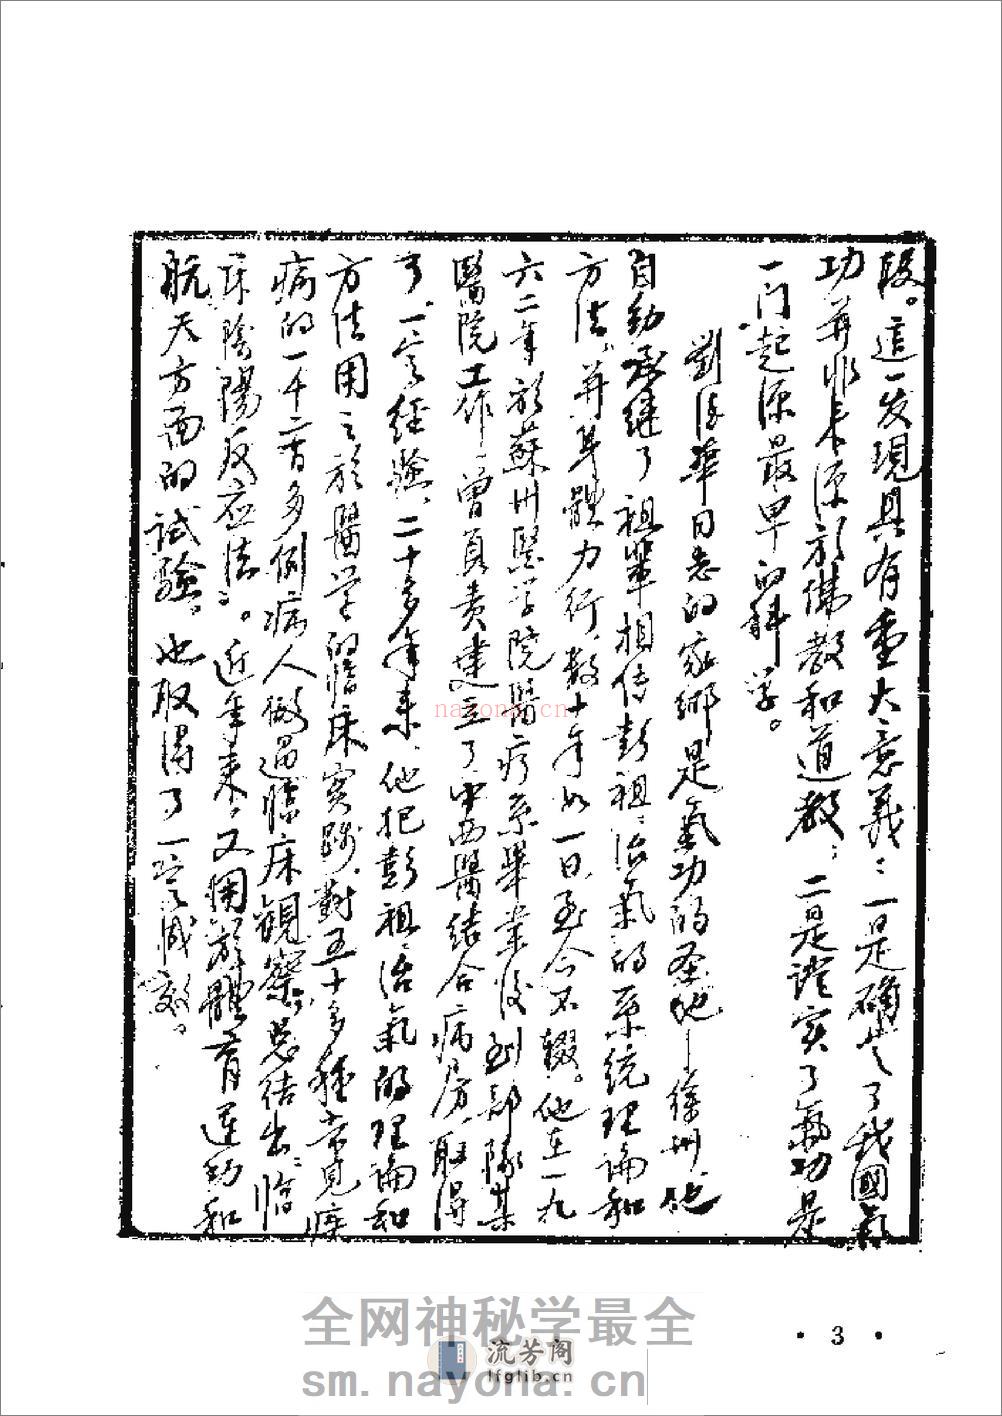 段。這一发現具有重大意義：一是确定了我國氣
功并非来源於佛教和道教；二是證实了氣功是
一门起源最早的科学。
劉後華同志的家鄉是氣功的圣地—徐州，他
自幼承继了祖輩相传彭祖治氣的系统理論和
方法，并身體力行，数十年如一日，至今不辍。他在一九
六二年於蘇州医学院医疗系畢業後到部隊某
醫院工作，曾負责建立了中西醫结合病房，取得
了一定经驗，二十多年来，他把彭祖治氣的理論和
方法用之於醫学的临床实践，對五十多種常见疾
病的一千二百多例病人做過臨床觀察，总结出“临
床陰陽反应法”。近年来，又用於體育運动和
航天方面的試驗，也取得了一定成效。
nayona.cn
全网神秘学最全
流芳阁
lfglib.cn
sm.nayona.cn
• 3 •